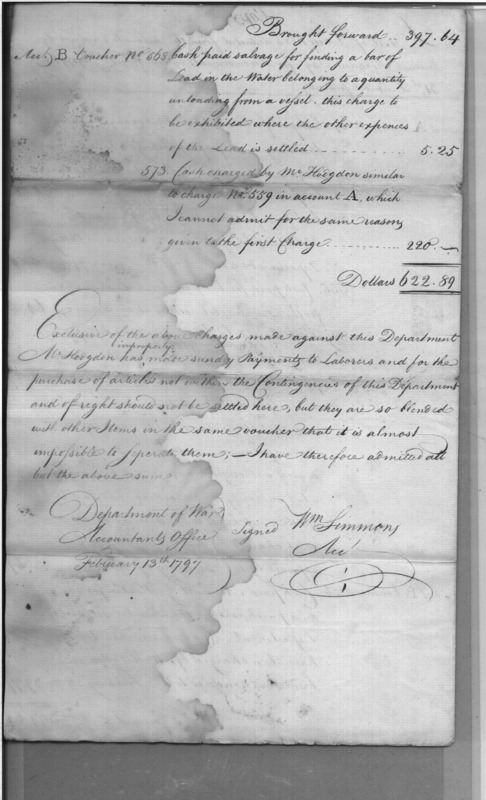 Brought forward .. 397.64
Acct B Voucher No 568 Cash paid salvage for finding a bar of
Lead in the Water belonging to a quantity
unloading from a vessel. this charge to
be exhibited where the other expences
of the Lead is settled 5.25
573 Cash charged by Mr Hodgdon similar
to charge No. 559 in account A, which
I cannot admit for the same reasons
given to the first Charge 220.—
Dollars 622.89
Exclusive of the above Charges made against this Department
improperly
Mr Hodgdon has made sundry Payments to Laborers and for the
purchase of articles not within the Contingencies of this Department
and of right should not be settled here, but they are so blended
with other Items in the same voucher that it is almost
impossible to seperate them; — I have therefore admitted all
but the above sum
Department of War
Accountants Office Signed Wm Simmons
February 13th 1797 Acct